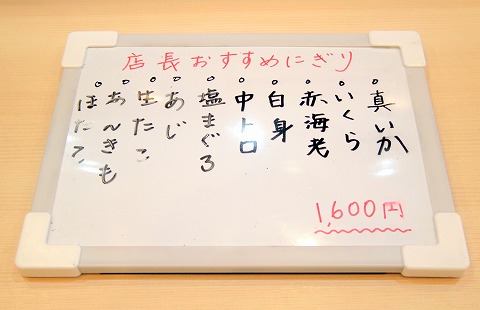 店長おすすめにぎり
真いか
いくら
赤海老
白身
中トロ
塩まぐろ
あじ
生たこ
あんきも
ほたて
1,600円